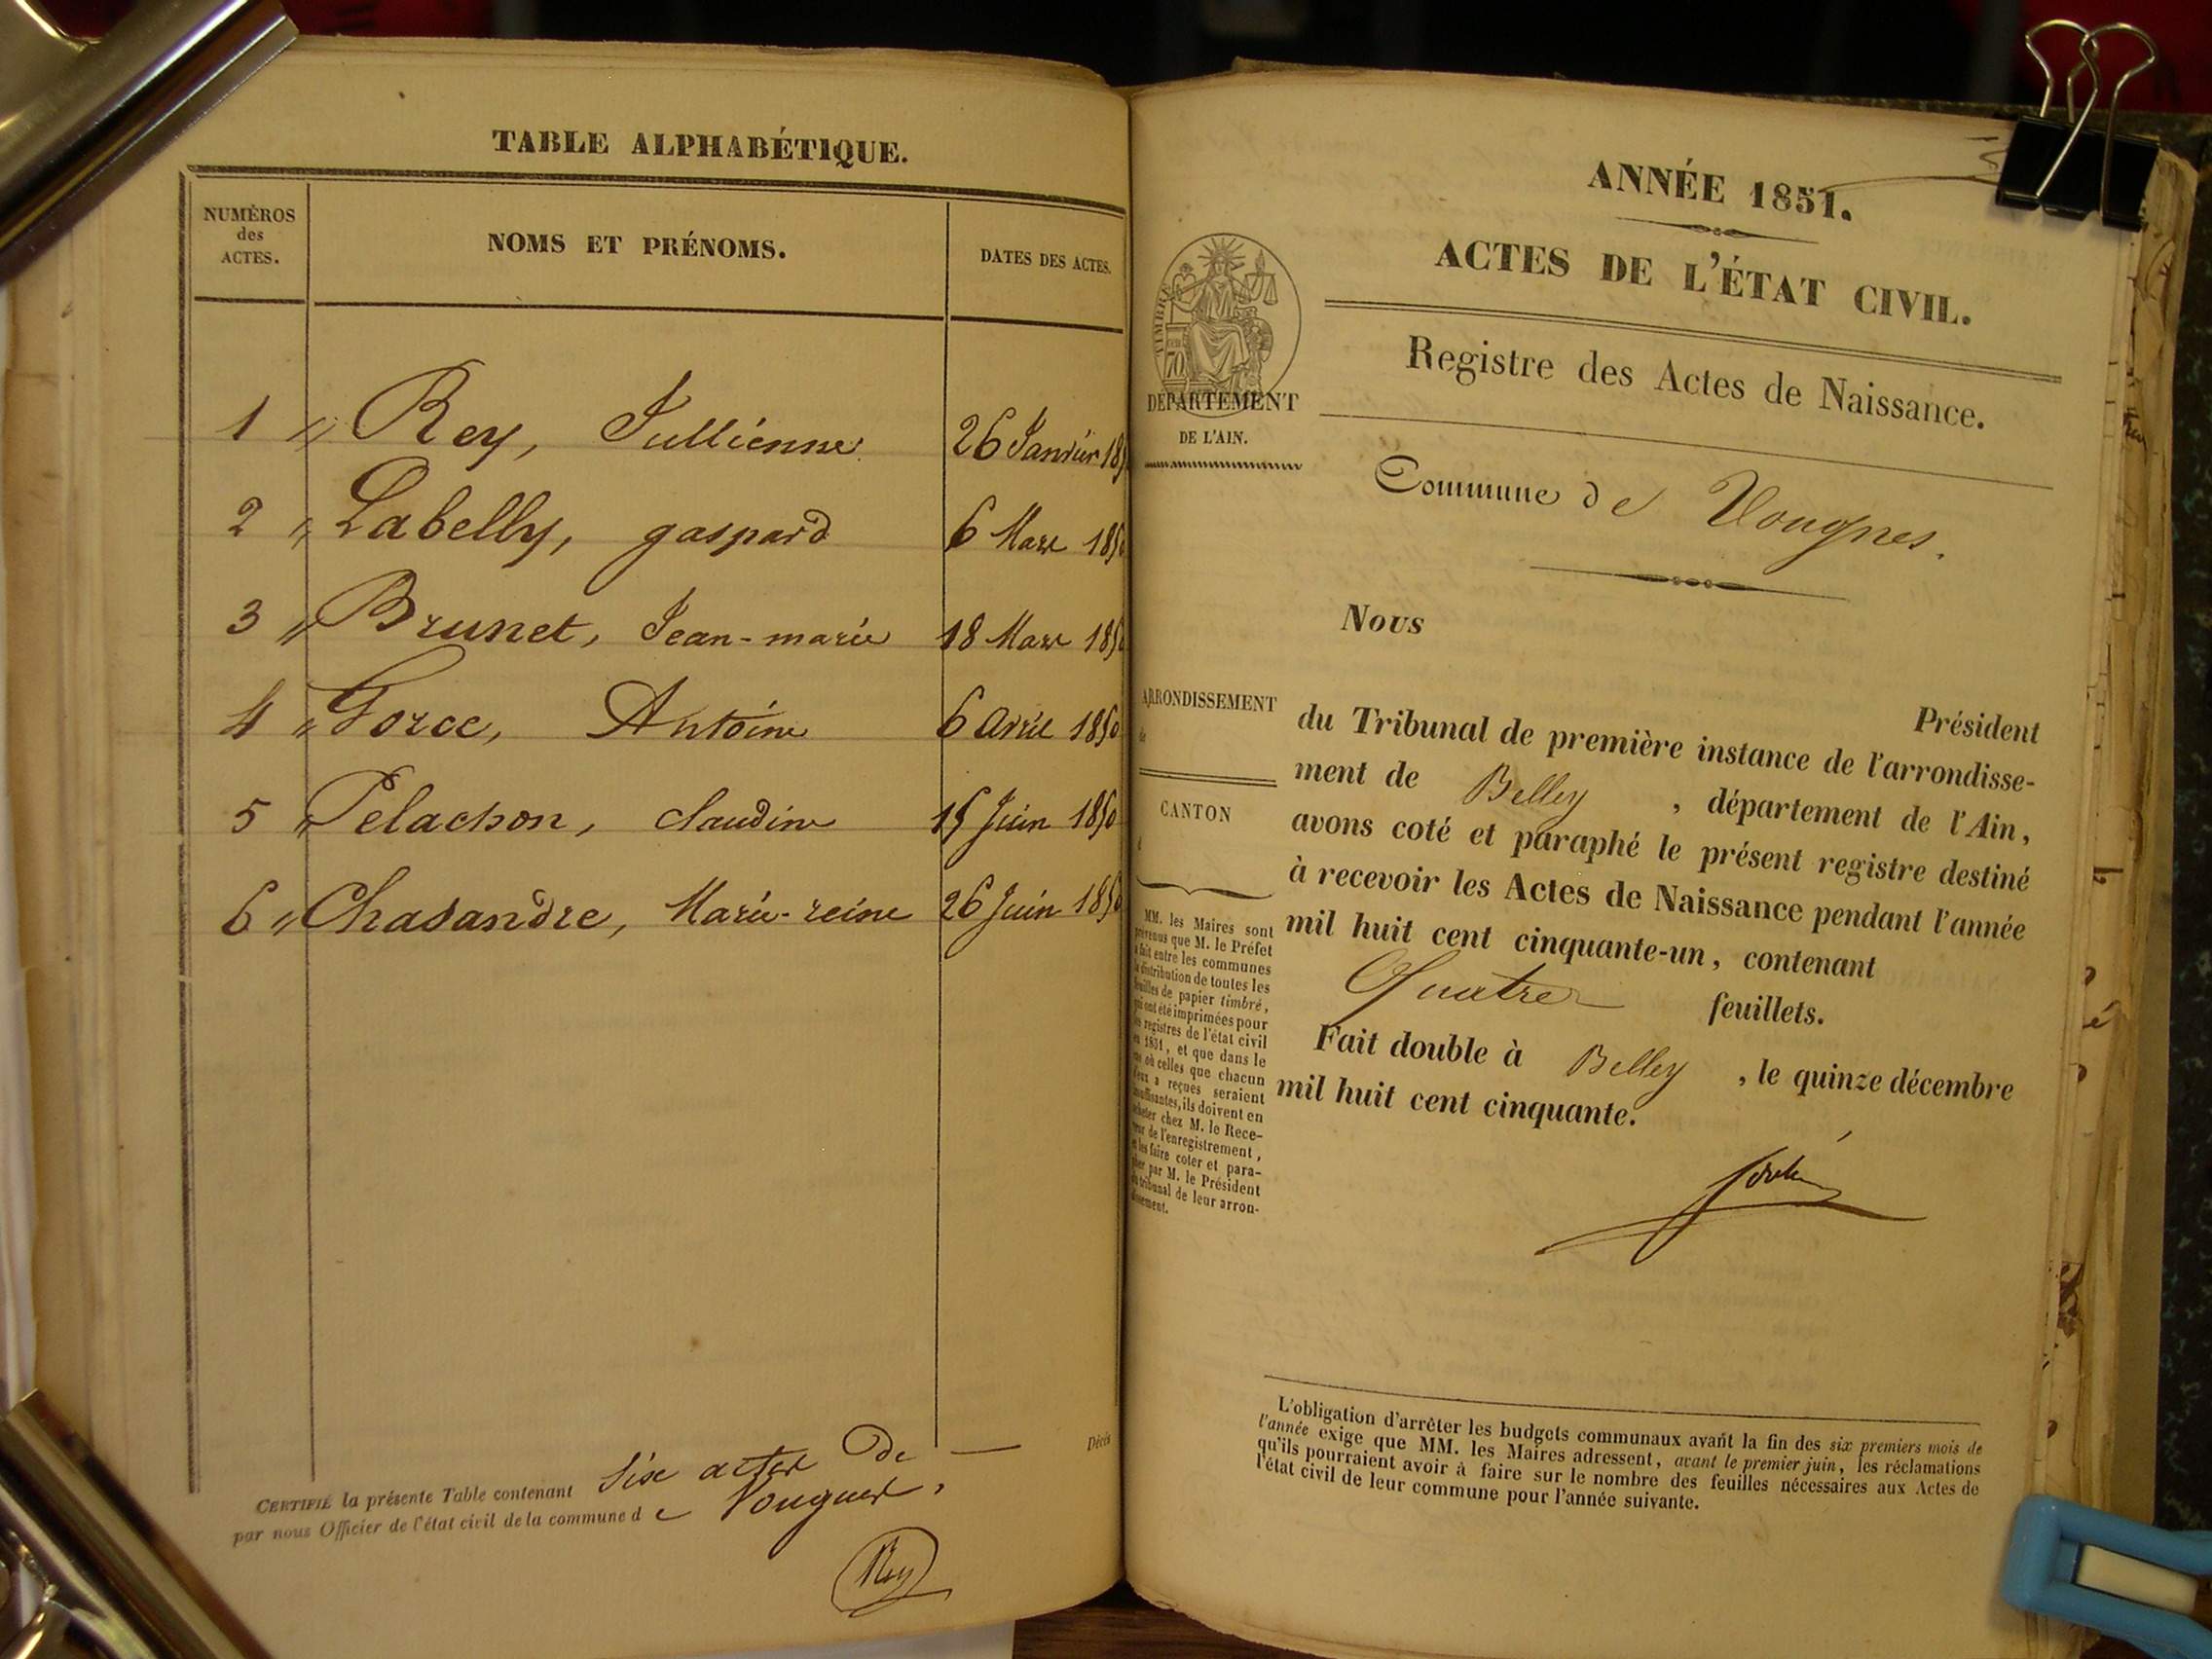 TABLE ALPHABÉTIQUE.
NUMÉROS
des
ACTES.
NOMS ET PRÉNOMS.
DATES DES ACTES.
1 " Rey, Jullienne 26 Janvier 185
2 " Labelly, gaspard 6 Mars 1850
3 " Brunet, Jean-marie 18 Mars 1850
4 " Gorce, Antoine 6 avril 1850
5 " Pelachon, claudine 15 Juin 1850
6 " Chasandre, Marie-reine 26 Juin 1850
CERTIFIÉ la présente Table contenant Six actes De — Décès
par nous Officier de l'état civil de la commune de Vougnes,
Rey
ANNÉE 1851.
ACTES DE L'ÉTAT CIVIL.
Registre des Actes de Naissance.
TIMBRE
70
DÉPARTEMENT
DE L'AIN.
Commune de Vougnes.
Nous
Président
du Tribunal de première instance de l'arrondisse-
ment de Belley , département de l'Ain,
avons coté et paraphé le présent registre destiné
à recevoir les Actes de Naissance pendant l'année
mil huit cent cinquante-un, contenant
Quatre feuillets.
Fait double à Belley , le quinze décembre
mil huit cent cinquante.
ARRONDISSEMENT
de
CANTON
d
MM. les Maires sont
prévenus que M. le Préfet
a fait entre les communes
la distribution de toutes les
feuilles de papier timbré,
qui ont été imprimées pour
les registres de l'état civil
en 1851, et que dans le
cas où celles que chacun
d'eux a reçues seraient
insuffisantes, ils doivent en
acheter chez M. le Rece-
veur de l'enregistrement,
et les faire coter et para-
pher par M. le Président
du tribunal de leur arron-
dissement.
L'obligation d'arrêter les budgets communaux avant la fin des six premiers mois de
l'année exige que MM. les Maires adressent, avant le premier juin, les réclamations
qu'ils pourraient avoir à faire sur le nombre des feuilles nécessaires aux Actes de
l'état civil de leur commune pour l'année suivante.